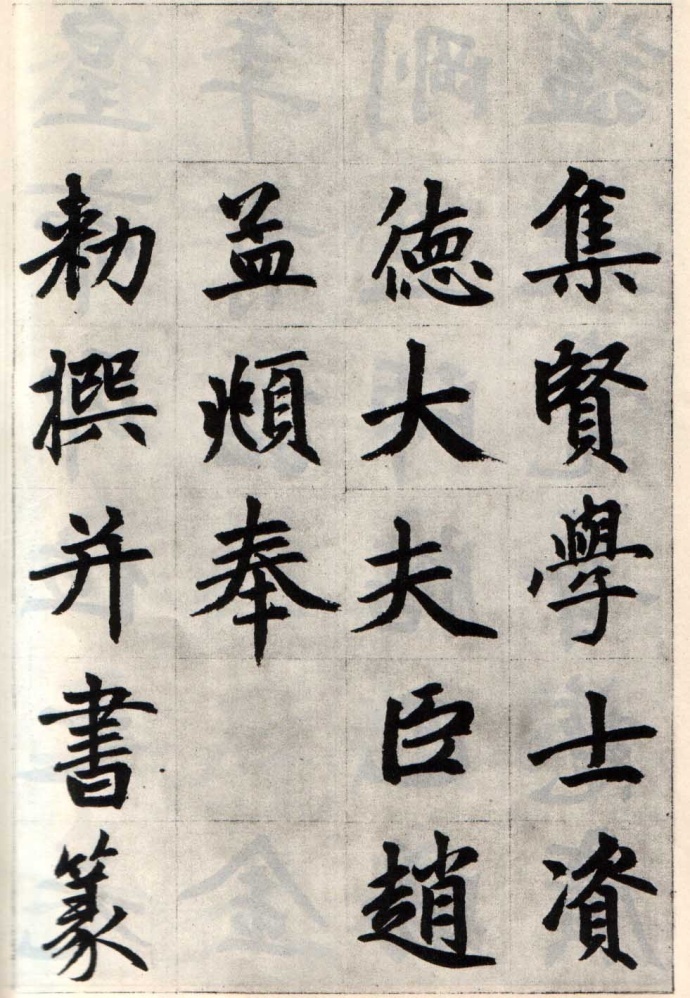 集賢學士資
德大夫臣趙
益頫奉
勅撰并書篆